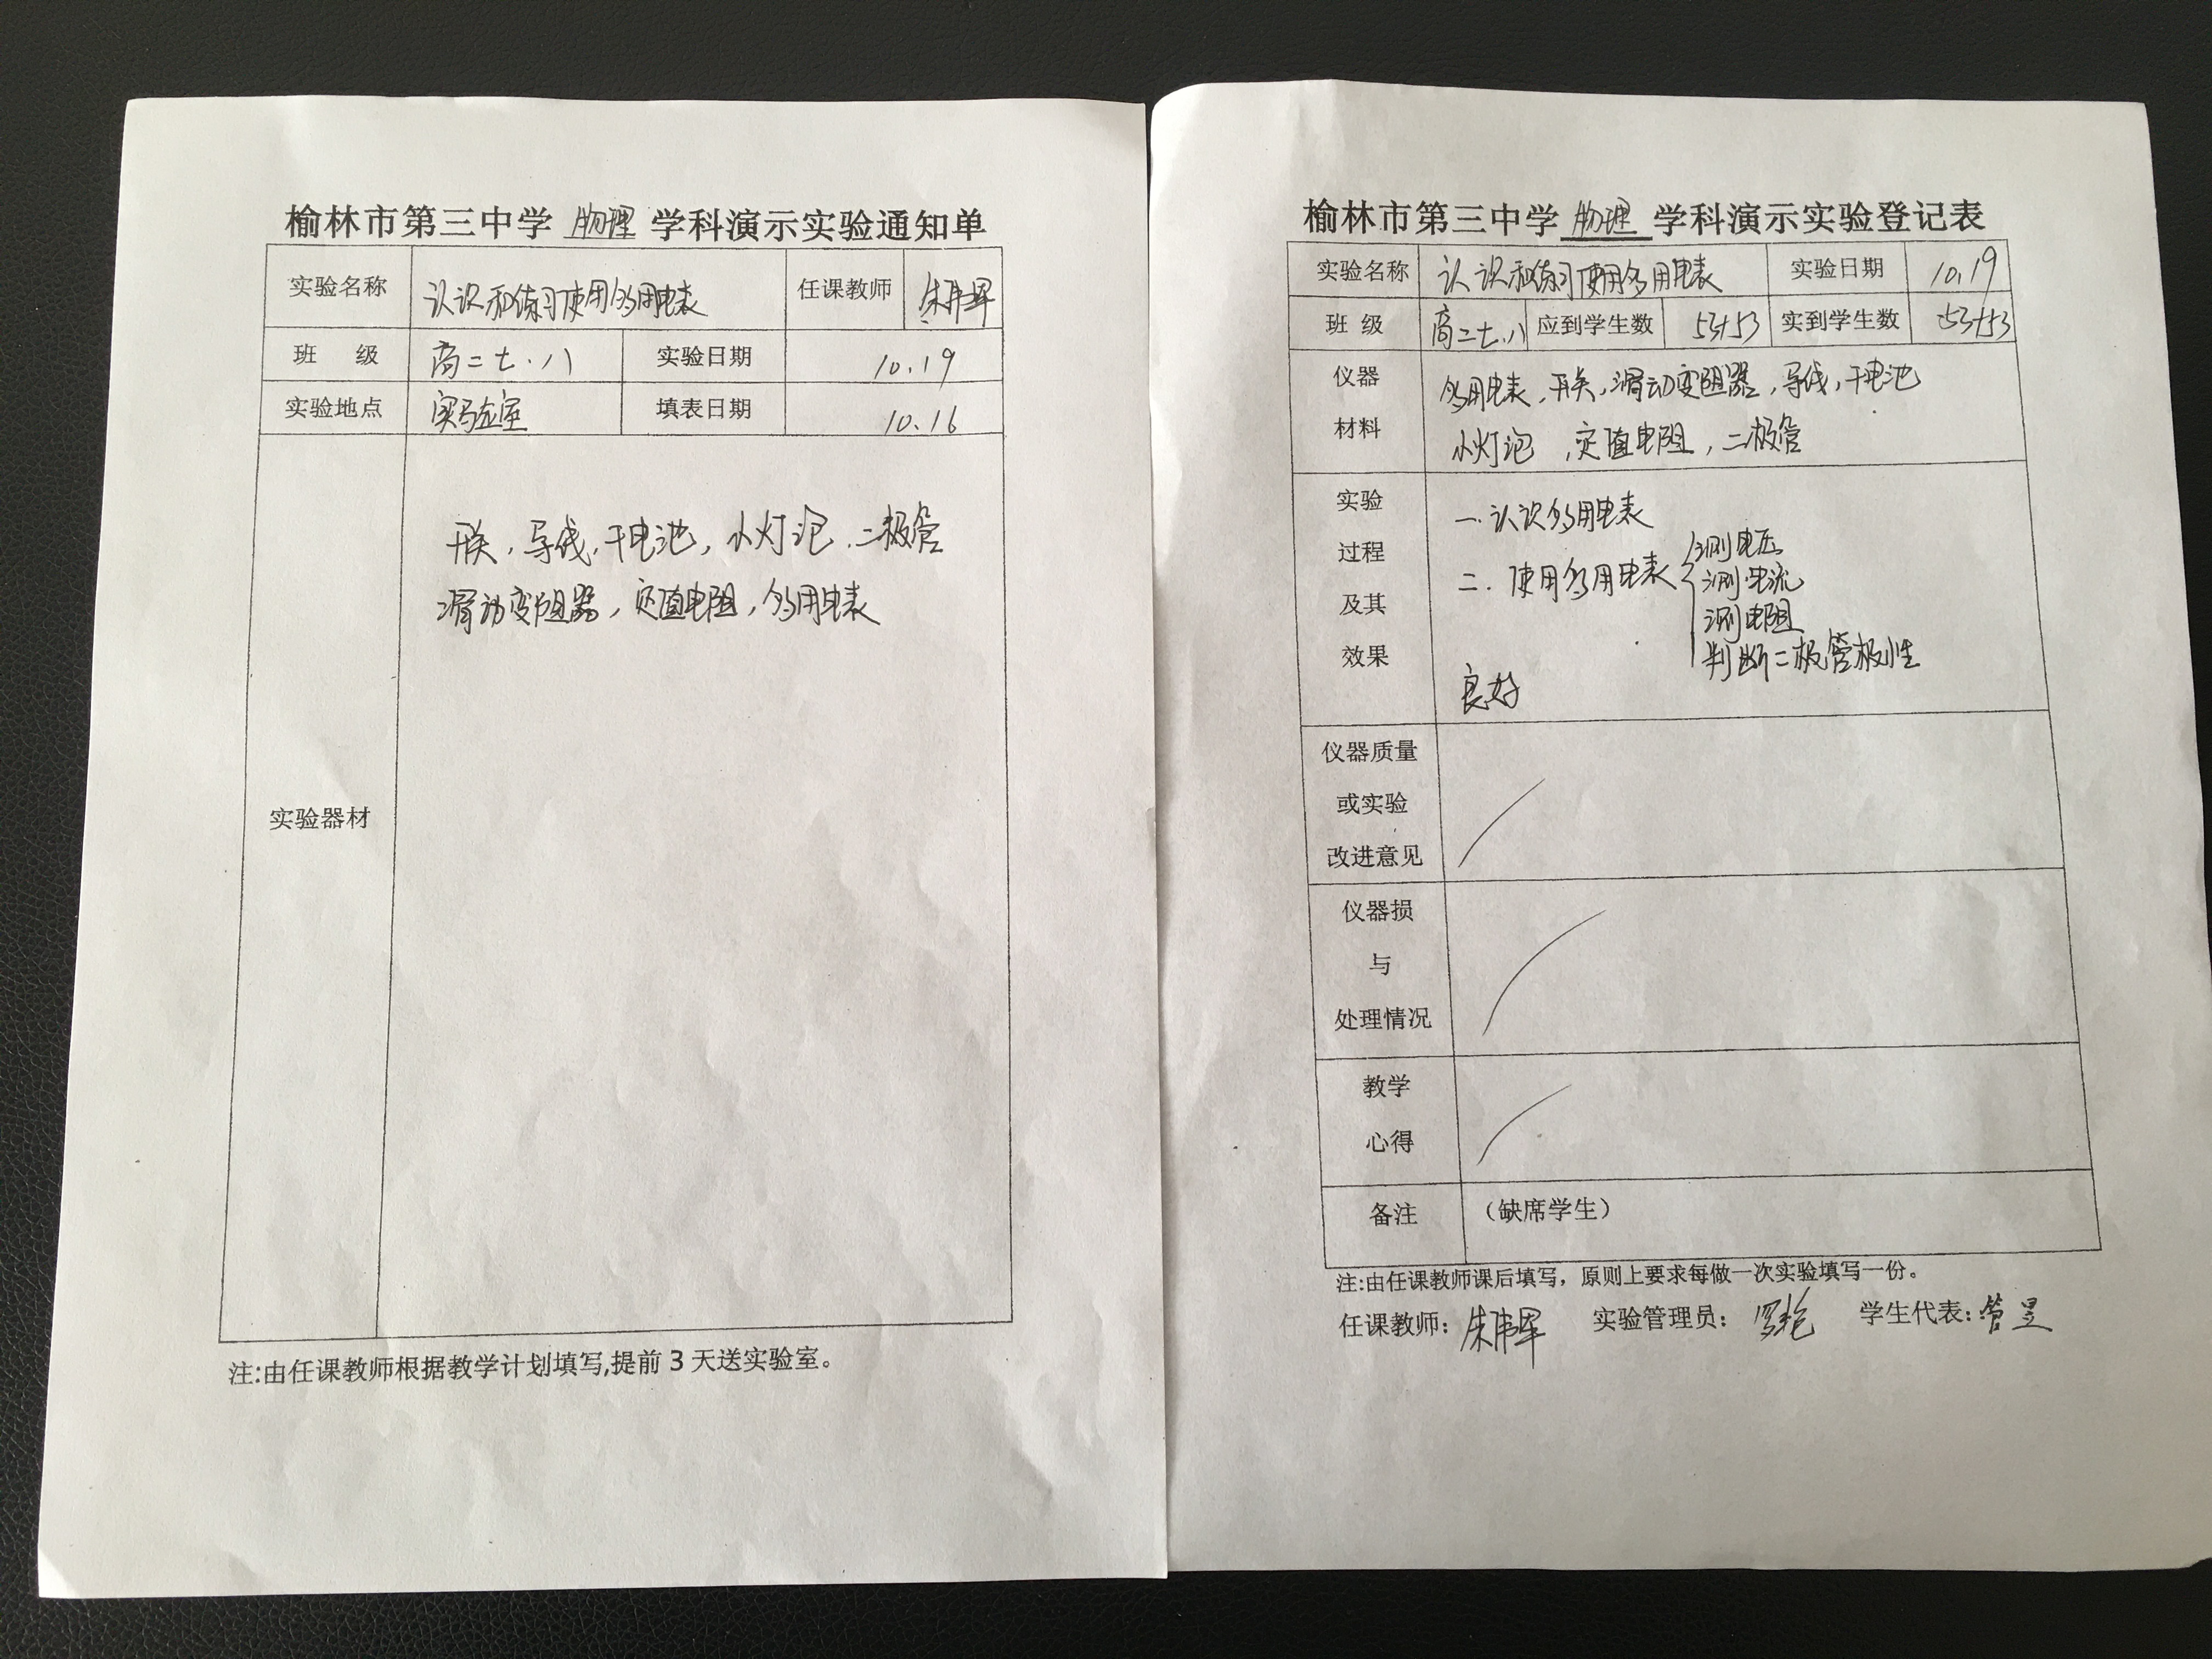 榆林市第三中学 物理 学科演示实验通知单
实验名称 认识和练习使用多用电表 任课教师 朱伟军
班 级 高二七.八 实验日期 10.19
实验地点 实验室 填表日期 10.16
实验器材
开关,导线,干电池,小灯泡.二极管
滑动变阻器,定值电阻,多用电表
注:由任课教师根据教学计划填写,提前3天送实验室。
榆林市第三中学 物理 学科演示实验登记表
实验名称 认识和练习使用多用电表 实验日期 10.19
班 级 高二七.八 应到学生数 53+53 实到学生数 53+53
仪器 多用电表,开关,滑动变阻器,导线,干电池
材料 小灯泡,定值电阻,二极管
实验 一.认识多用电表
过程 二.使用多用电表 测电压
测电流
及其 测电阻
效果 判断二极管极性
良好
仪器质量
或实验
改进意见
仪器损
与
处理情况
教学
心得
备注 (缺席学生)
注:由任课教师课后填写,原则上要求每做一次实验填写一份。
任课教师: 朱伟军 实验管理员: 学生代表: 管昱